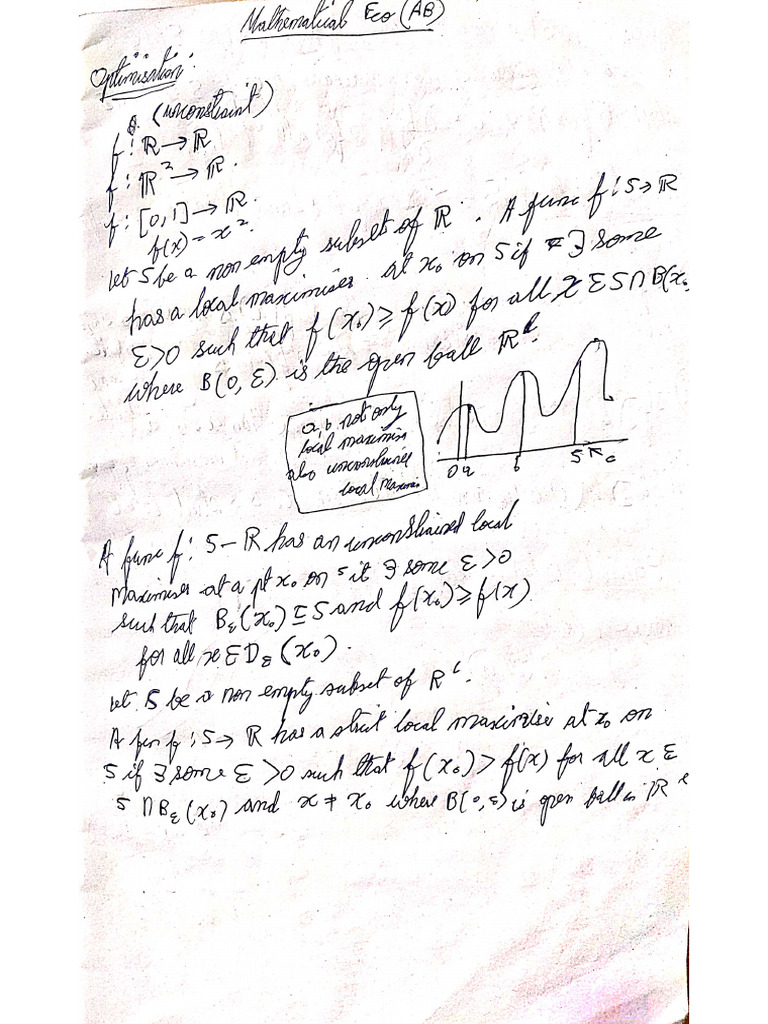 Mathematical Eco (AB)
Optimisation:
(unconstraint)
f: R → R
f: R² → R.
f: [0,1] → R.
f(x) = x².
let S be a non empty subset of R. A func f: S → R
has a local maximiser at x₀ on S if ∃ some
ε>0 such that f(x₀) ≥ f(x) for all x ε S ∩ B(x₀
where B(0, ε) is the open ball R^l.
a, b not only
local maximise
also unconstrained
local maximis
0 a b S c
A func f: S – R has an unconstrained local
Maximiser at a pt x₀ on S if ∃ some ε >0
such that B_ε(x₀) ⊆ S and f(x₀) ≥ f(x)
for all x ε B_ε(x₀).
let S be a non empty subset of R^l.
A fun f: S → R has a strict local maximiser at x₀ on
S if ∃ some ε >0 such that f(x₀) > f(x) for all x ε
S ∩ B_ε(x₀) and x ≠ x₀ where B(0, ε) is open ball in R^l